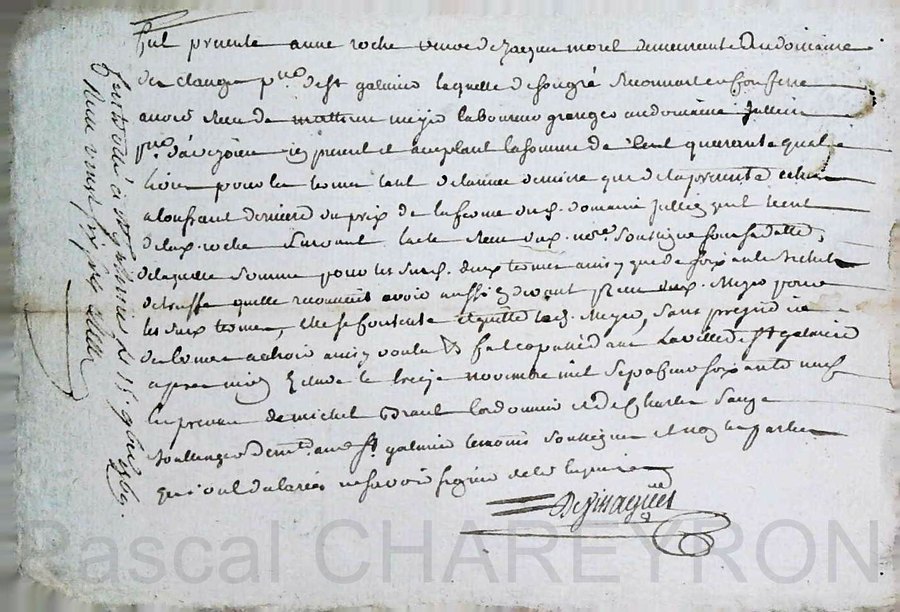 fut presente anne roche veuve de Jacques morel demeurante Au domaine
des clauge p.sse de st galmier laquelle de son gré Reconnait et confesse
avoir Reçu de mathieu meyer laboureur granger au domaine Jullien
p.sse d'aveizieu icy present et acceptant la somme de Cent quarante quatre
livres pour les termes tant de l'année derniere que de la presente echus
a la toussaint derniere du prix de la ferme du d. domaine Jullien qu'il tient
de la d. roche suivant l'acte Reçu du d. no.re soussigné sous sa datte,
de laquelle somme pour les susd. deux termes ainsy que de soixante bichets
de truffe quelle reconnoit avoir aussi cy devant Reçu du d. Meyer pour
les deux termes, elle se contente et quitte le d. Meyer, sans prejudice
du terme a échoir ainsy voulu & fait et passé en la ville de St galmier
apres midy Etude le treize novembre mil sept cent soixante neuf
en presence de michel Brand cordonnier et de Charles Sauze
boullanger dem.t au d. St galmier temoins soussignés et non les parties
qui ont declaré ne savoir signer de ce enquises
Desmagnet
Controllé à st galmier le 15 9bre 1769.
Reçu vingt six sols
Pascal CHAREYRON